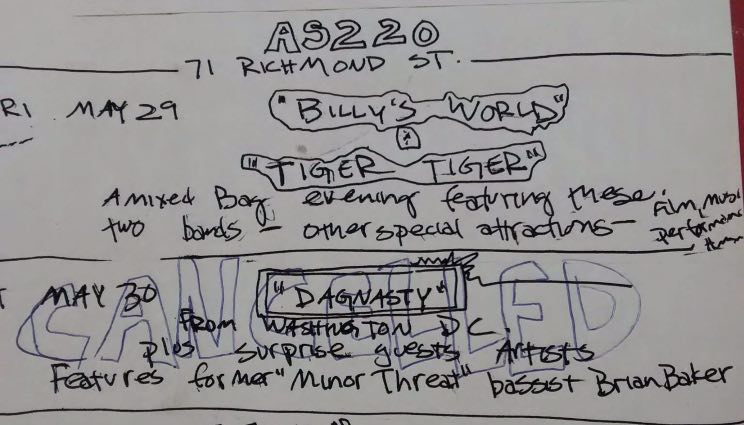 AS220
71 RICHMOND ST.
RI MAY 29 "BILLY'S WORLD"
"TIGER TIGER"
A mixed Bag evening featuring these
two bands — other special attractions — Film, Music
performance
T MAY 30 "DAGNASTY"
CANCELLED
From WASHINGTON D.C.
plus surprise guests Artists
Features former "Minor Threat" bassist Brian Baker